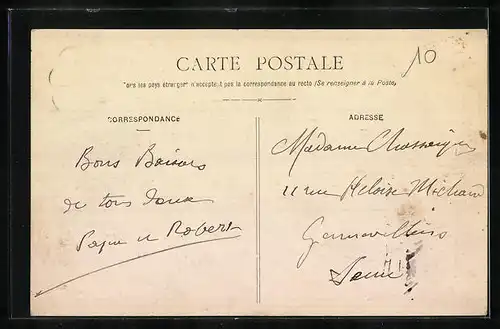 10
CARTE POSTALE
Tous les pays étrangers n'acceptent pas la correspondance au recto (Se renseigner à la Poste)
CORRESPONDANCE
Bons Baisers
de tous deux
Papa et Robert
ADRESSE
Madame
11 rue Héloïse Michaud
Gennevilliers
Seine